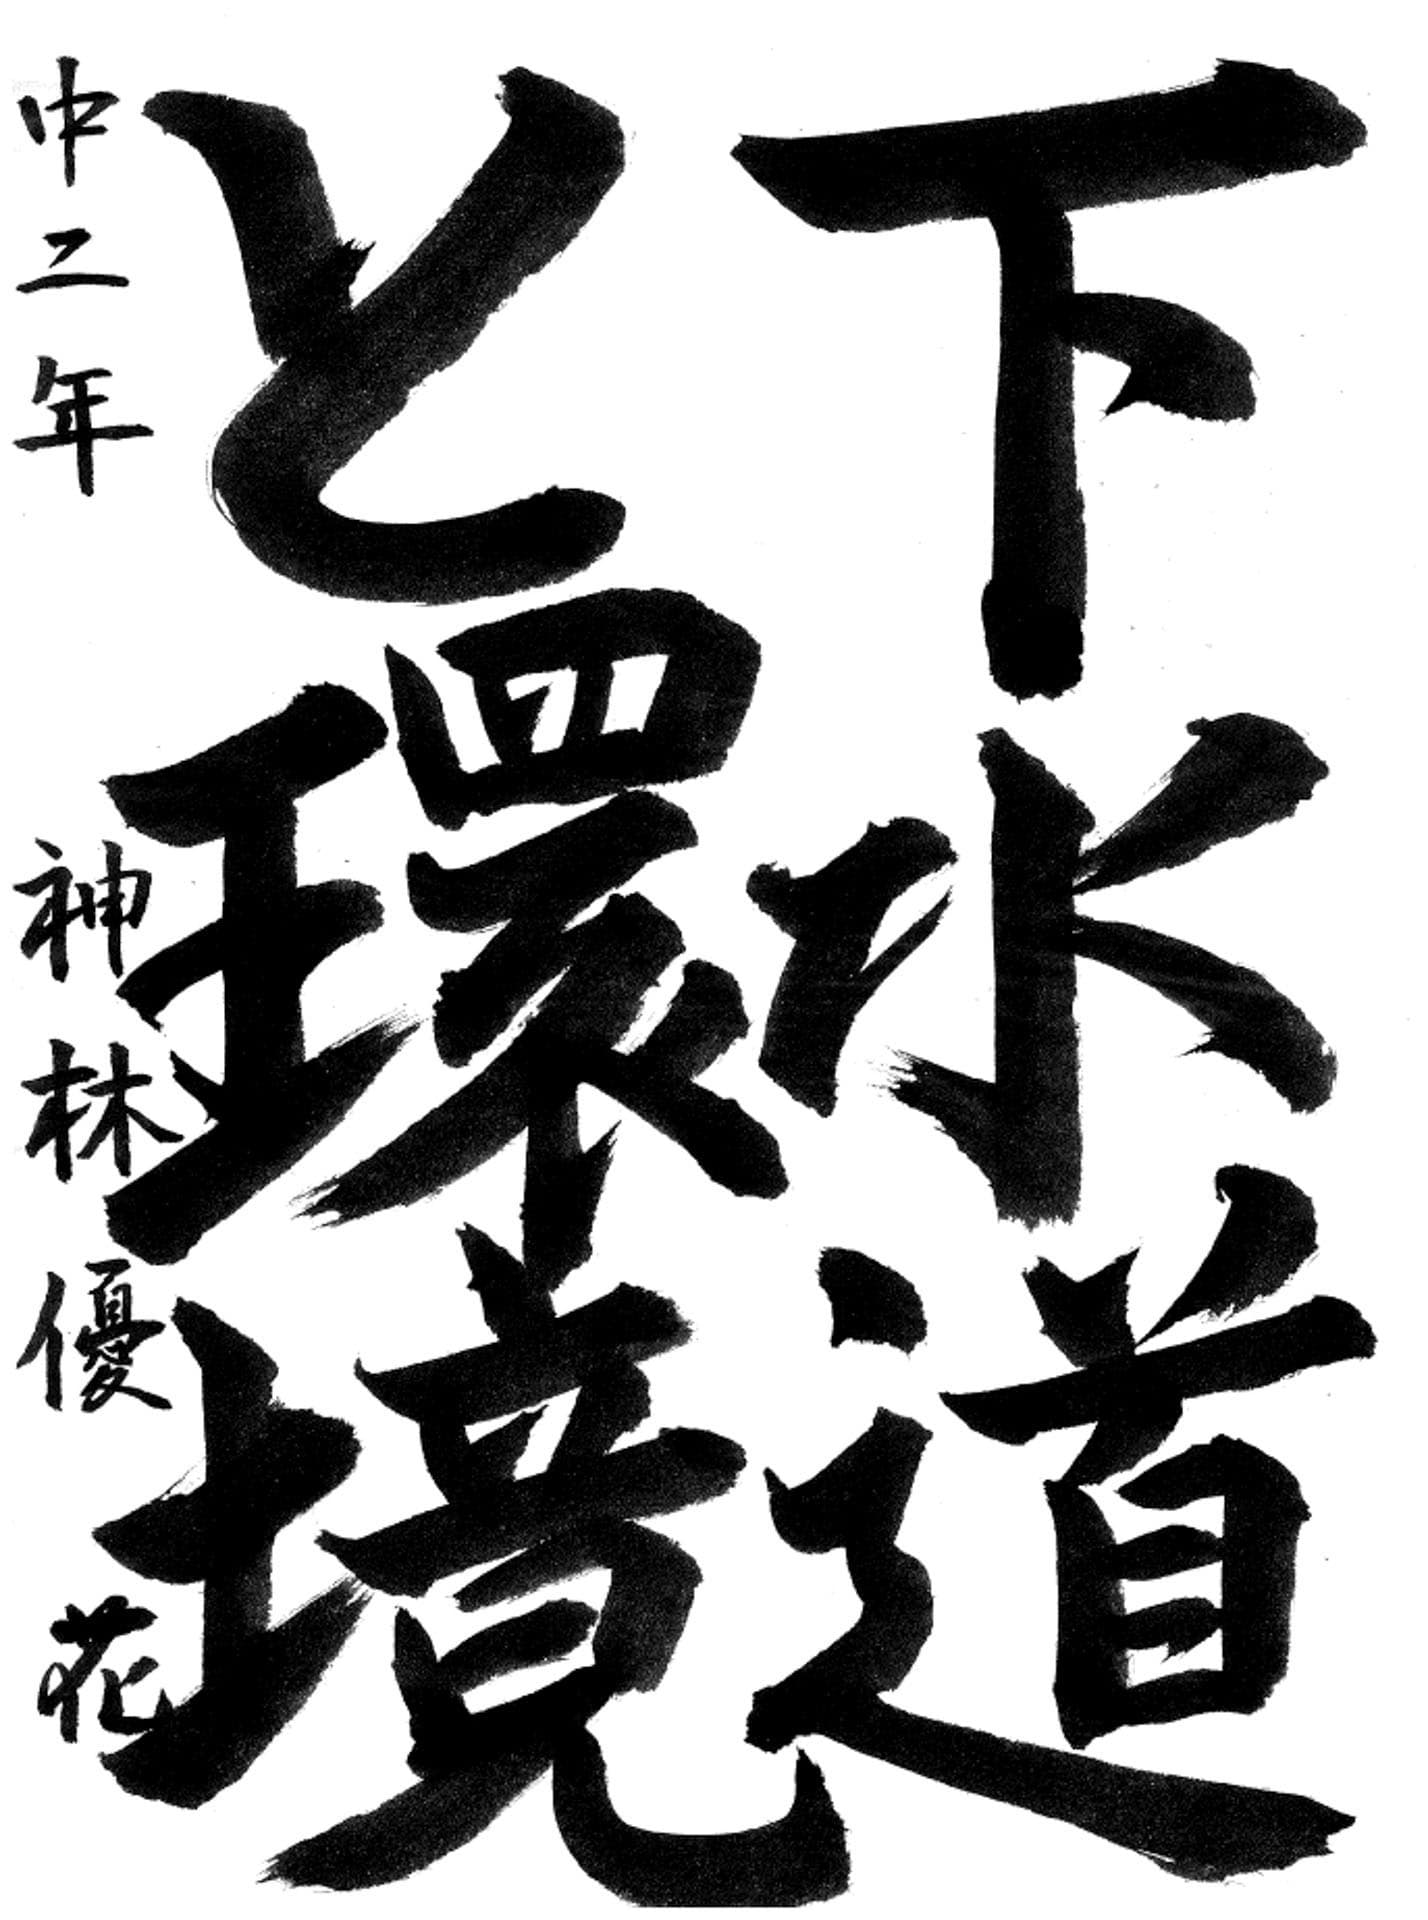 下水道
と環境
中二年 神林優花